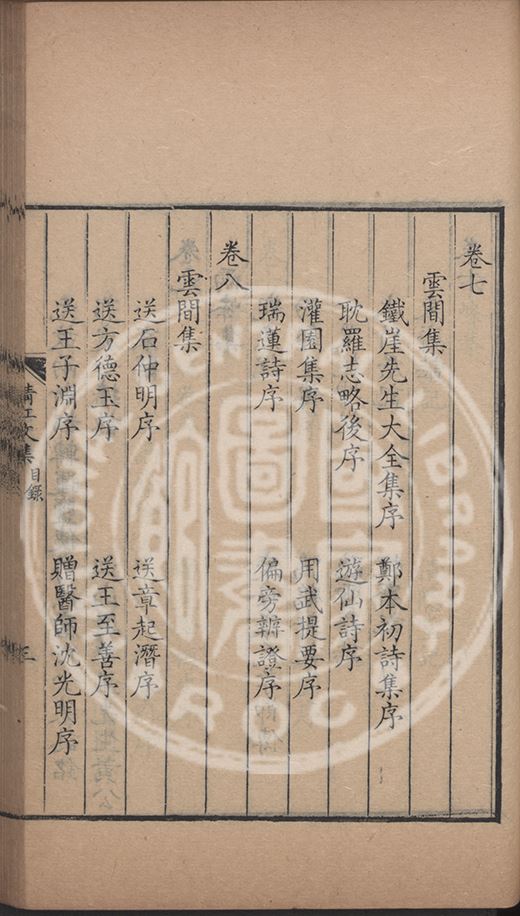 卷七
雲間集
鐵崖先生大全集序　鄭本初詩集序
耽羅志略後序　遊仙詩序
灌園集序　用武提要序
瑞蓮詩序　偏旁辨證序
卷八
雲間集
送石仲明序　送章起潛序
送方德玉序　送王至善序
送王子淵序　贈醫師沈光明序
清江文集　目錄　三